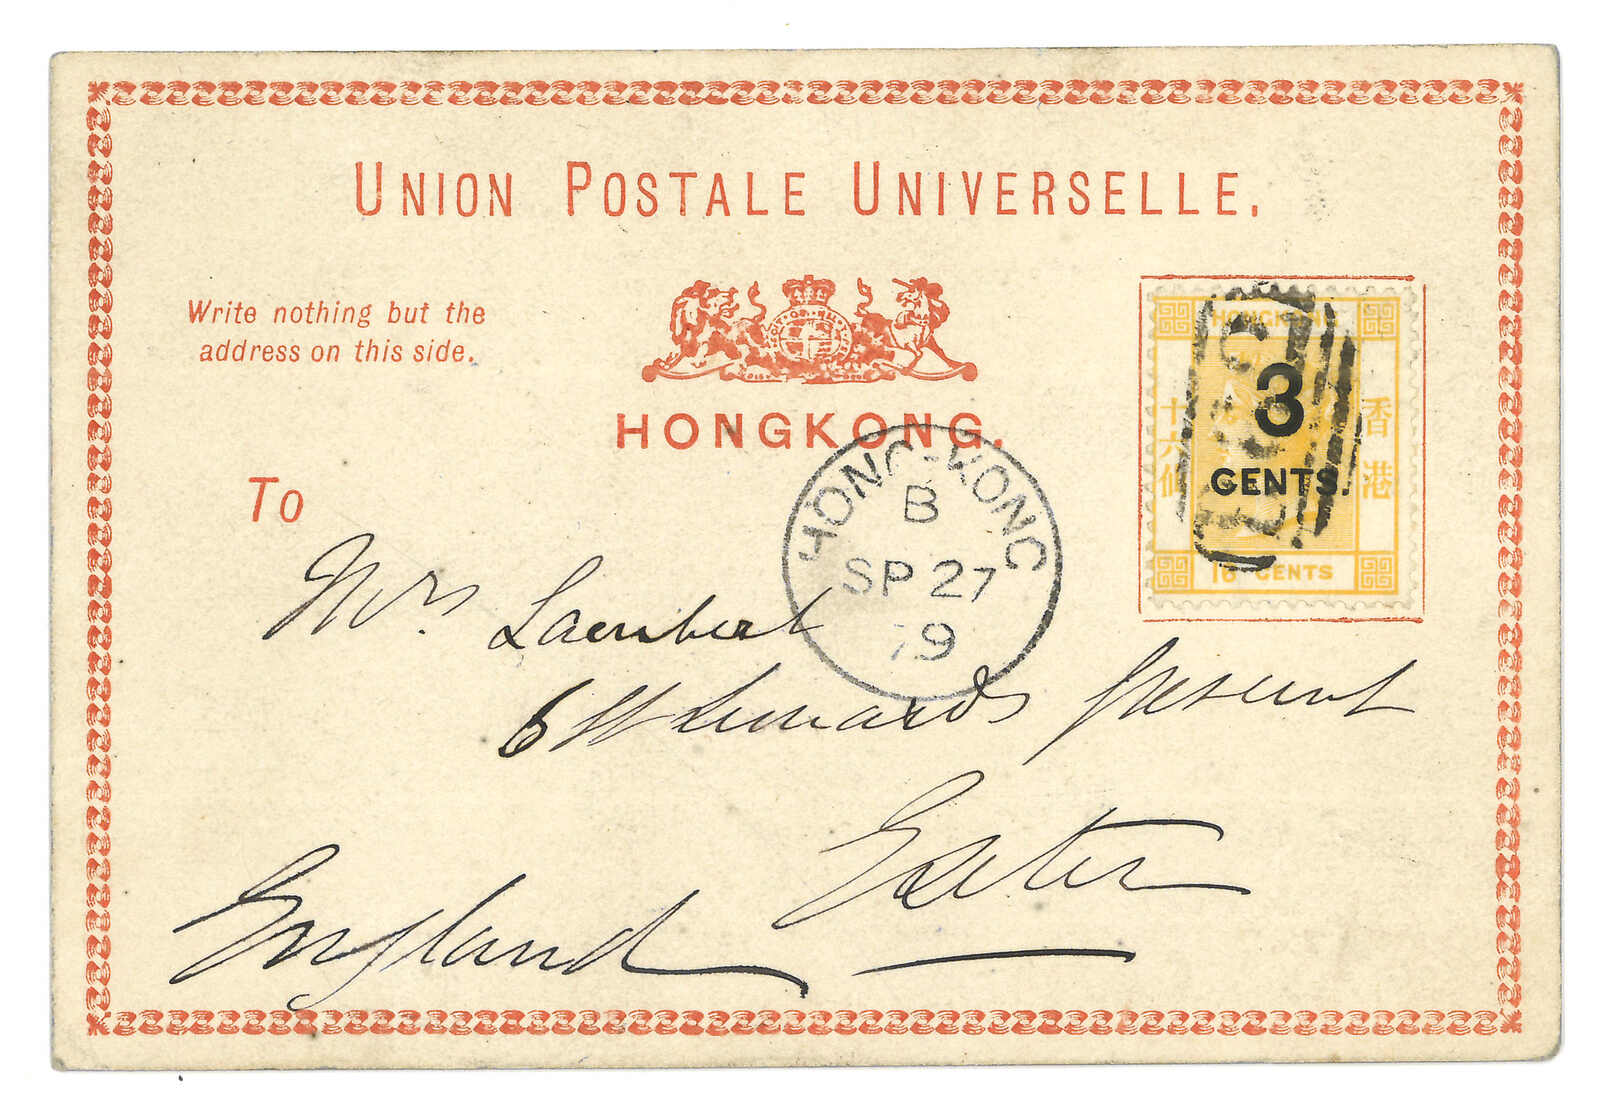 UNION POSTALE UNIVERSELLE.
Write nothing but the
address on this side.
HONGKONG.
To
HONG-KONG
B
SP 27
79
HONGKONG
3
CENTS.
十六仙
香港
16 CENTS
Mrs Lambert
6 St Leonards
Exeter
England